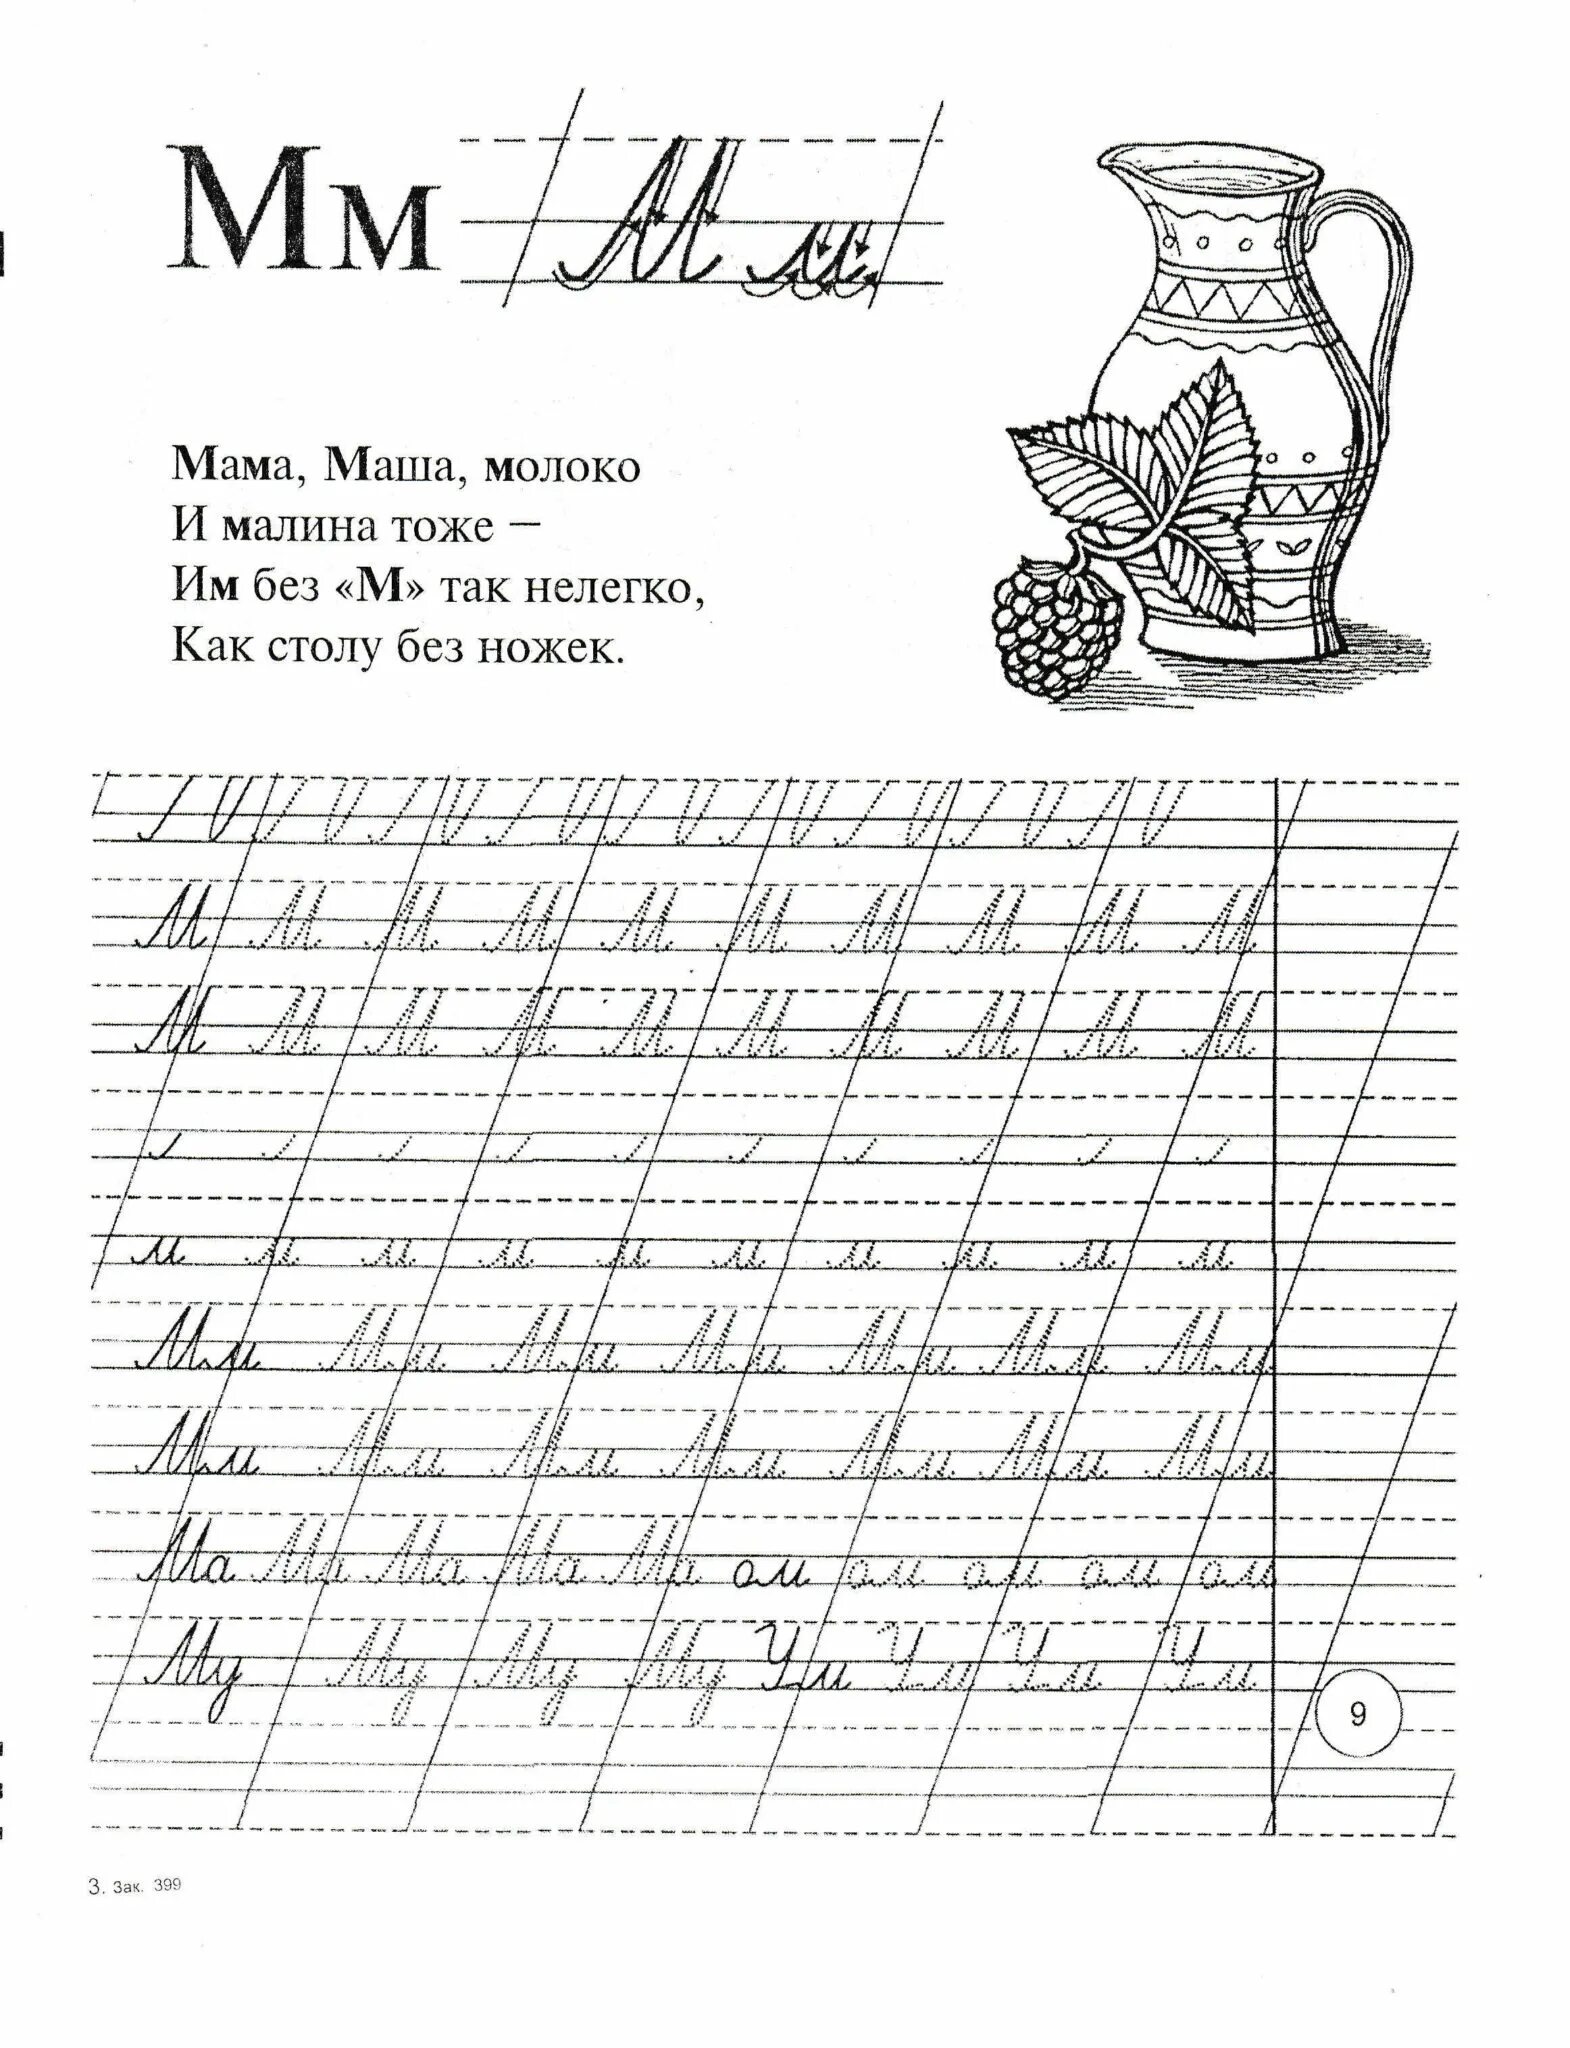 Мм Мм
Мама, Маша, молоко
И малина тоже –
Им без «М» так нелегко,
Как столу без ножек.
М М М М М М М М М М
М М М М М М М М М М
м м м м м м м м м м
Мм Мм Мм Мм Мм Мм Мм
Мм Мм Мм Мм Мм Мм Мм
Ма Ма Ма Ма Ма ам ам ам ам ам
Му Му Му Му Ум Ум Ум Ум
9
3. Зак. 399